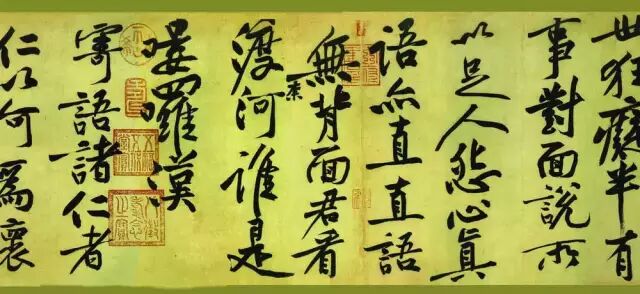 世狂癡半有
事對面說所
以足人怨心真
語亦直直語
無背面君看
渡柰河誰是
嘍囉漢
寄語諸仁者
仁以何爲懷